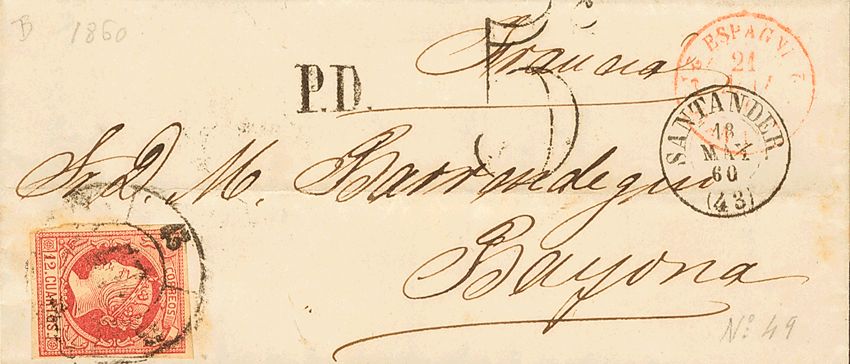 B 1860
Francia
P.D.
5
ESPAGNE
21
SANTANDER
18
MAY
60
(43)
Sr. D. M.
Bayona
12 CUARTOS
CORREOS
No. 49